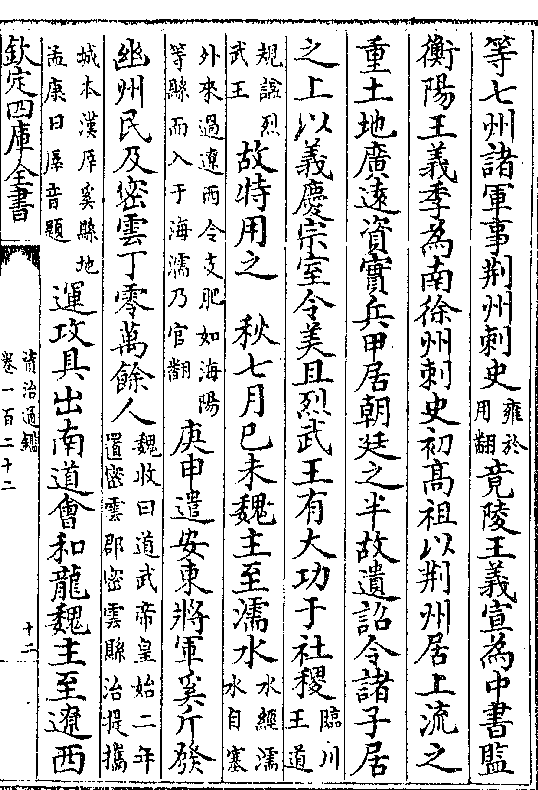 等七州諸軍事荆州刺史雍於用翻竟陵王義宣為中書監
衡陽王義季為南徐州刺史初髙祖以荆州居上流之
重土地廣遠資實兵甲居朝廷之半故遺詔令諸子居
之上以義慶宗室令美且烈武王有大功于社稷臨川王道
規諡烈武王故特用之　秋七月已未魏主至濡水水經濡水自塞
外來過遼西令支肥如海陽等縣而入于海濡乃官翻庚申遣安東將軍奚斤發
幽州民及密雲丁零萬餘人魏收曰道武帝皇始二年置密雲郡密雲縣治提攜
城本漢厗奚縣地孟康曰厗音題運攻具出南道會和龍魏主至遼西
欽定四庫全書
資治通鑑
卷一百二十二
十二